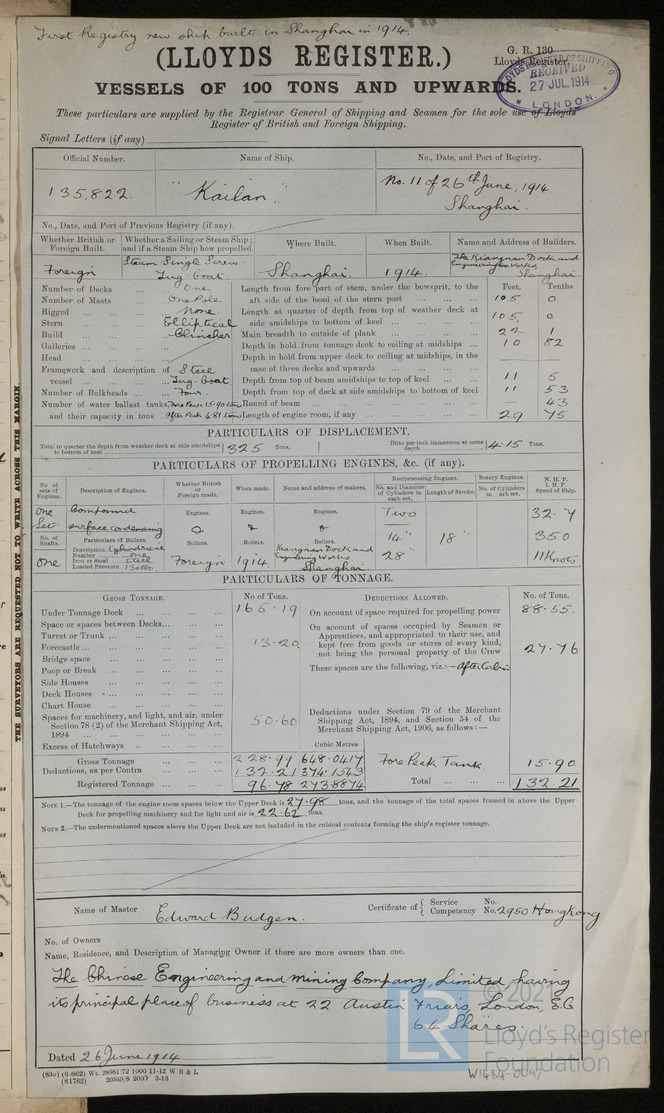 First Registry new ship built in Shanghai in 1914.
(LLOYDS REGISTER.)
G. R. 130
Lloyds Register.
LLOYDS REGISTER OF SHIPPING
RECEIVED
27 JUL. 1914
LONDON.
VESSELS OF 100 TONS AND UPWARDS.
These particulars are supplied by the Registrar General of Shipping and Seamen for the sole use of Lloyds
Register of British and Foreign Shipping.
Signal Letters (if any)
Official Number. Name of Ship. No., Date, and Port of Registry.
135,822. "Kailan" No. 11 of 26th June, 1914
Shanghai.
No., Date, and Port of Previous Registry (if any).
Whether British or Foreign Built. Whether a Sailing or Steam Ship; and if a Steam Ship how propelled. Where Built. When Built. Name and Address of Builders.
Foreign Steam Single Screw. Tug boat Shanghai. 1914. The Kiangnan Dock and Engineering Works, Shanghai
Feet. Tenths.
Number of Decks ... One.
Number of Masts One Pole
Rigged ... None.
Stern ... Elliptical
Build ... Clincher
Galleries ...
Head
Framework and description of vessel ... Steel Tug-Boat
Number of Bulkheads ... Four.
Number of water ballast tanks, and their capacity in tons Fore Peak 15.90 tons After Peak 4.81 tons
Length from fore part of stem, under the bowsprit, to the aft side of the head of the stern post ... 105 0
Length at quarter of depth from top of weather deck at side amidships to bottom of keel ... 105 0
Main breadth to outside of plank ... 22 1
Depth in hold from tonnage deck to ceiling at midships ... 10 82
Depth in hold from upper deck to ceiling at midships, in the case of three decks and upwards ... —
Depth from top of beam amidships to top of keel ... 11 5
Depth from top of deck at side amidships to bottom of keel 11 53
Round of beam ... — 43
Length of engine room, if any ... 29 75
PARTICULARS OF DISPLACEMENT.
Total to quarter the depth from weather deck at side amidships to bottom of keel 325 Tons. Ditto per inch immersion at same depth 4.15 Tons.
PARTICULARS OF PROPELLING ENGINES, &c. (if any).
No. of sets of Engines. Description of Engines. Whether British or Foreign made. When made. Name and address of makers. Reciprocating Engines. No. and Diameter of Cylinders in each set. Length of Stroke. Rotary Engines. No. of Cylinders in each set. N. H. P. I. H. P. Speed of Ship.
One Set. Compound surface condensing Engines. Engines. Engines. Two 32.7
No. of Shafts. Particulars of Boilers. Boilers. Boilers. Boilers. 14" 18" 350
One Description Cylindrical Number One Iron or Steel Steel Loaded Pressure 130 lbs Foreign 1914. Kiangnan Dock and Engineering Works Shanghai 28" 11 Knots
PARTICULARS OF TONNAGE.
GROSS TONNAGE. No of Tons. DEDUCTIONS ALLOWED. No. of Tons.
Under Tonnage Deck ... 165.19
Space or spaces between Decks ...
Turret or Trunk ...
Forecastle ... 13.20
Bridge space
Poop or Break
Side Houses
Deck Houses
Chart House
Spaces for machinery, and light, and air, under Section 78 (2) of the Merchant Shipping Act, 1894 ... 50.60
Excess of Hatchways
Cubic Metres
Gross Tonnage ... 228.99 648.0417
Deductions, as per Contra ... 132.21 374.1543
Registered Tonnage ... 96.78 273.8874
On account of space required for propelling power 88.55.
On account of spaces occupied by Seamen or Apprentices, and appropriated to their use, and kept free from goods or stores of every kind, not being the personal property of the Crew 27.76
These spaces are the following, viz.:— After Cabin
Deductions under Section 79 of the Merchant Shipping Act, 1894, and Section 54 of the Merchant Shipping Act, 1906, as follows:—
Fore Peak Tank. 15.90
Total ... 132.21
NOTE 1.—The tonnage of the engine room spaces below the Upper Deck is 27.98 tons, and the tonnage of the total spaces framed in above the Upper
Deck for propelling machinery and for light and air is 22.62 tons.
NOTE 2.—The undermentioned spaces above the Upper Deck are not included in the cubical contents forming the ship's register tonnage.
Name of Master Edward Budgen. Certificate of { Service No. Competency No. 2950 Hongkong
No. of Owners
Name, Residence, and Description of Managing Owner if there are more owners than one.
The Chinese Engineering and Mining Company, Limited, having
its principal place of business at 22 Austin Friars, London, E.C
64 Shares.
Dated 26 June 1914
(81762) 20349/8 2000 3-13
THE SURVEYORS ARE REQUESTED NOT TO WRITE ACROSS THIS MARGIN
© 2021
LR
Lloyd's Register
Foundation
W1484-0097